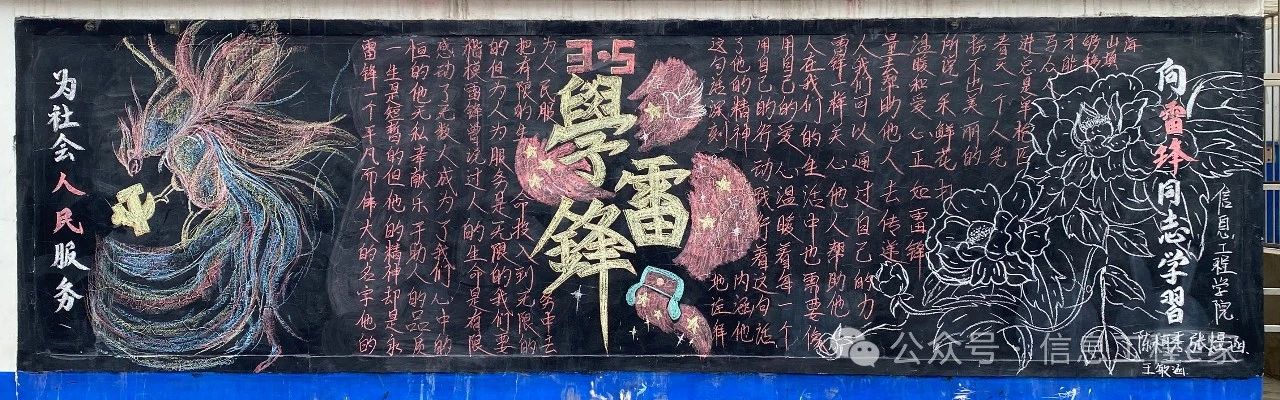 为社会人民服务
雷锋一个平凡而伟大的名字他的
一生是短暂的但他的精神却是永
恒的他无私奉献乐于助人的品质
感动了无数人成为了我们心中的
楷模雷锋曾说过人的生命是有限
的但为人民服务是无限的我们要
把有限的生命投入到无限的
为人民服务中去
3·5
學雷鋒
这句话深刻地诠释
了他的精神内涵他
用自己的行动践行着这句话
用自己的爱心温暖着每一个
人在我们的生活中也需要像
雷锋一样关心他人帮助他
人我们可以通过自己的力
量去帮助他人去传递
温暖和爱心正如雷锋
所说一朵鲜花打
扮不出美丽的
春天一个人先
进总是单枪匹
马众人
才能
够移
山填
海
向雷锋同志学習
信息工程学院
王敏涵
公众号·信息工程之家